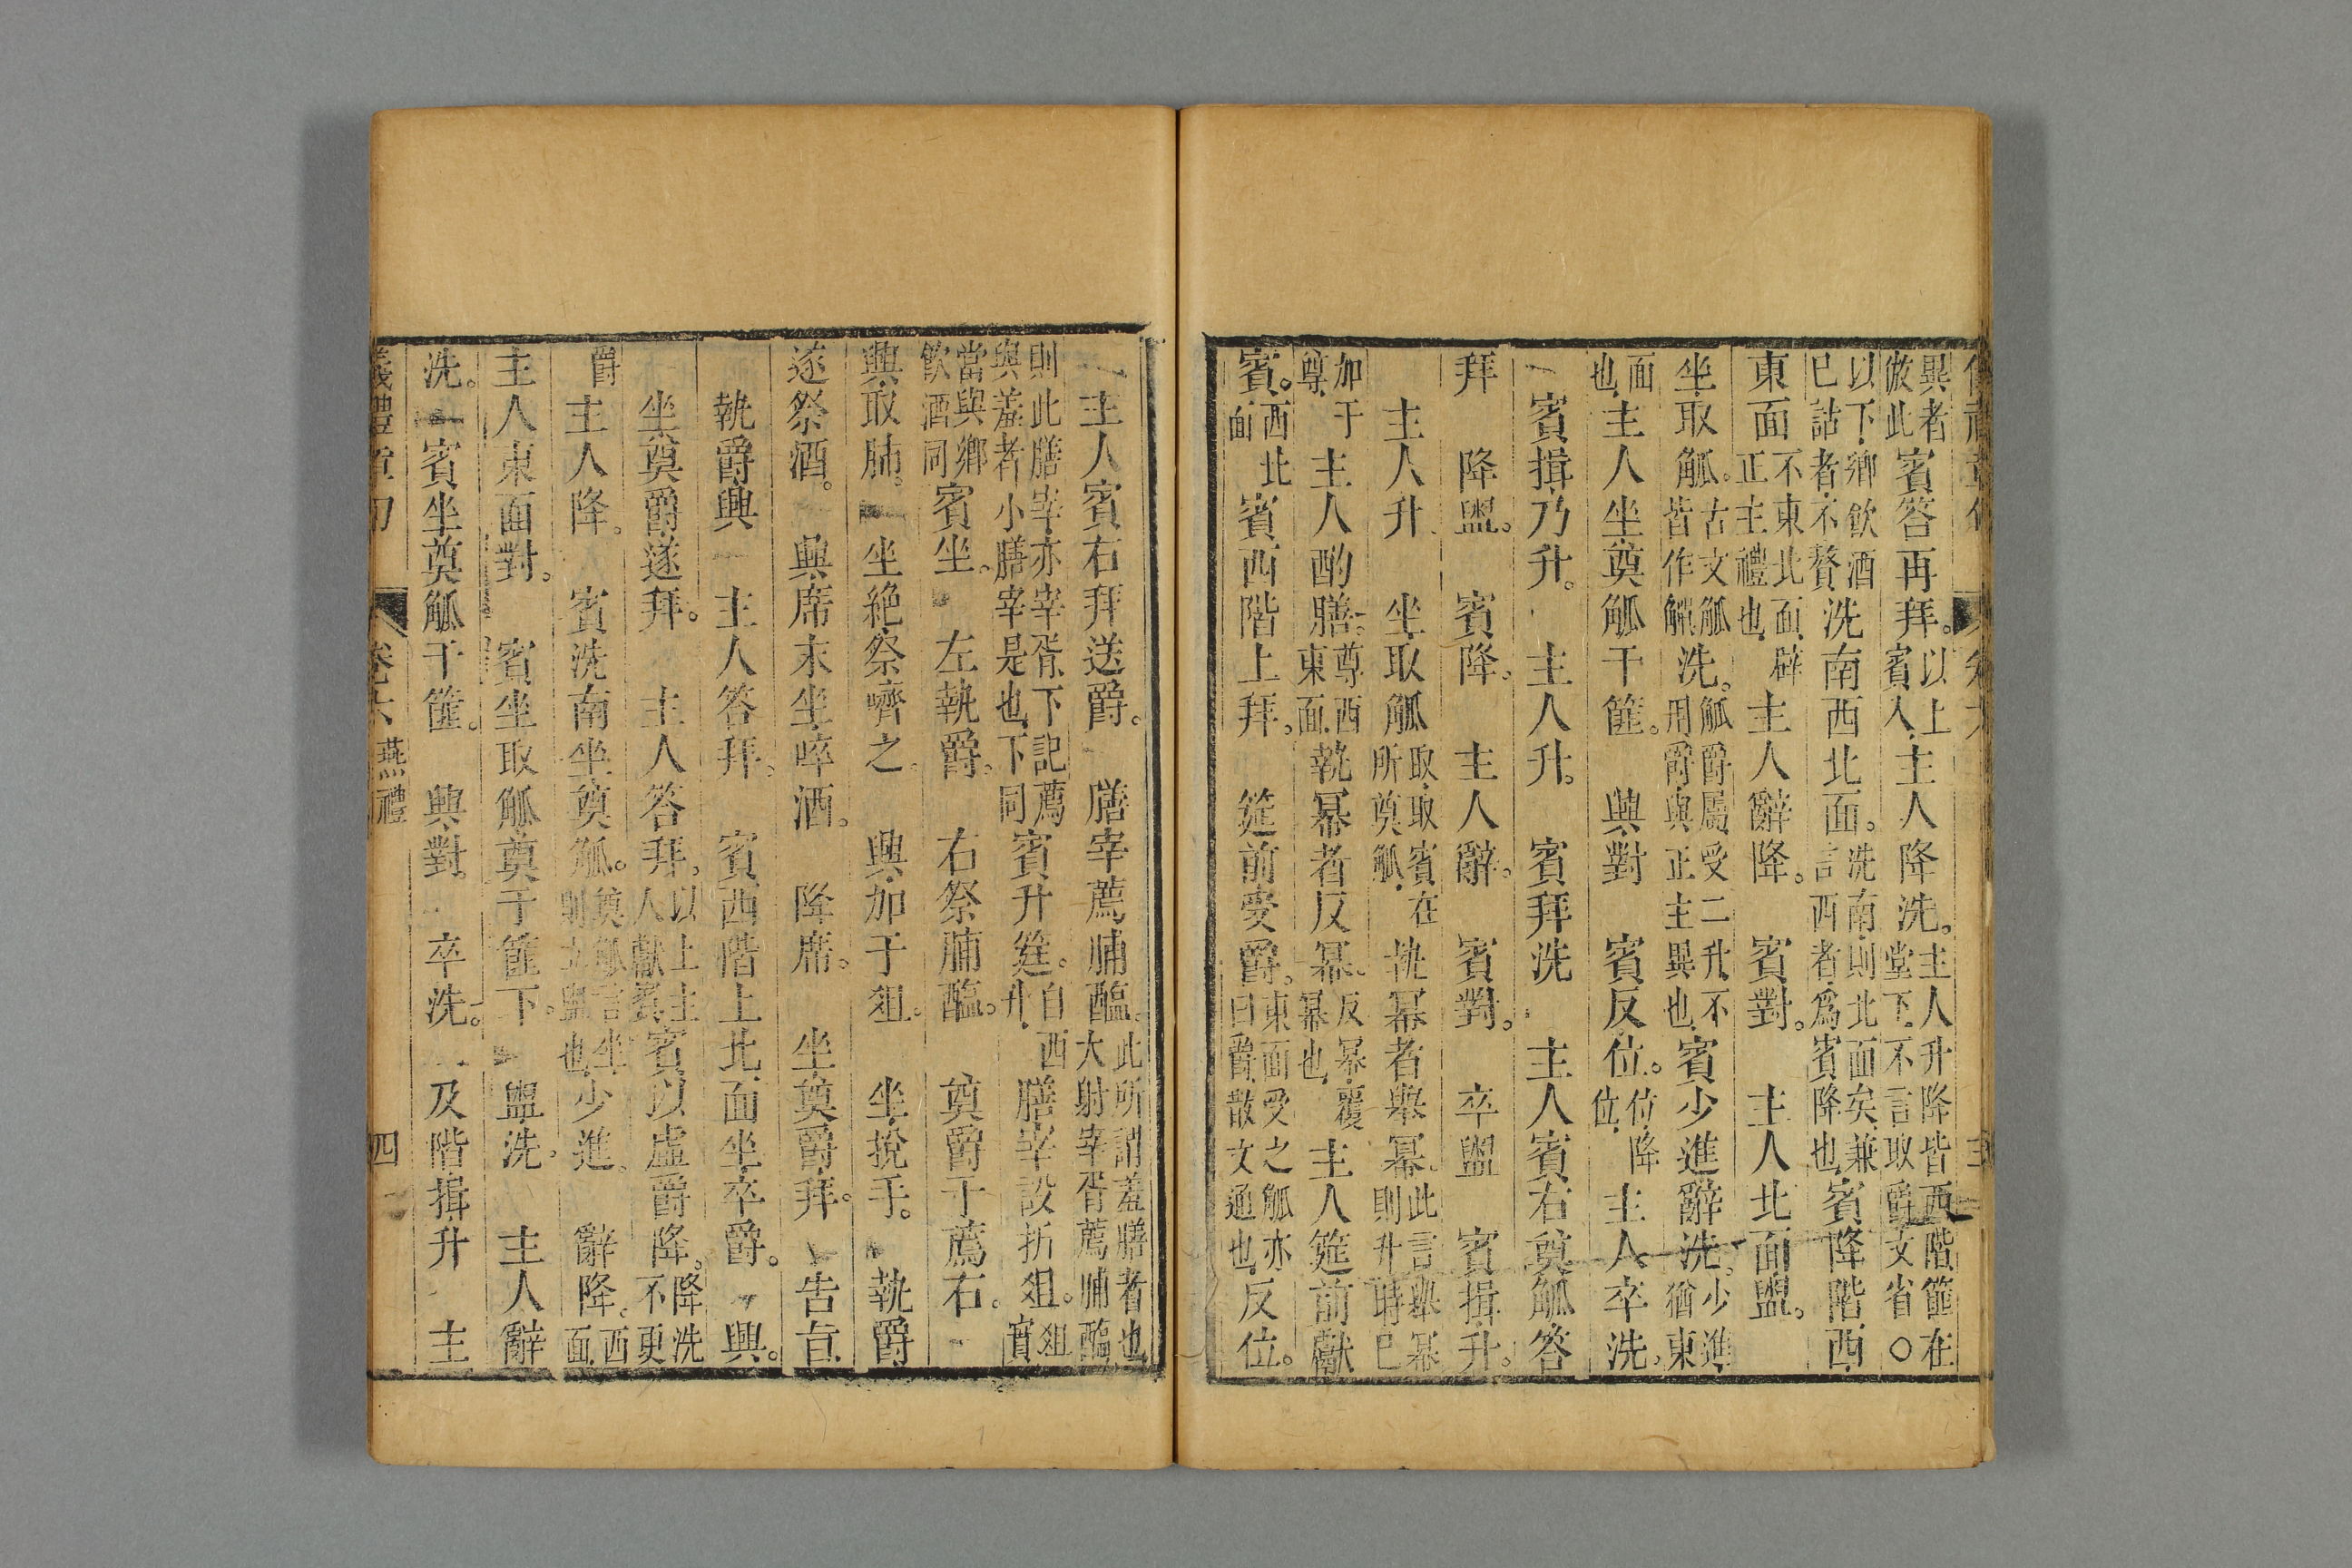 異者倣此賓答再拜。以上賓入主人降洗。主人升降皆西階篚在堂下不言取爵文省○
以下鄉飲酒已詁者不贅洗南西北面。洗南則北面矣兼言西者爲賓降也賓降階西
東面不東北面辟正主禮也主人辭降。賓對。主人北面盥。
坐取觚。古文觚皆作觶洗。觚爵屬受二升不用爵與正主異也賓少進辭洗。少進猶東
面也主人坐奠觚于篚。興對賓反位。位降位主人卒洗。
賓揖乃升。主人升。賓拜洗主人賓右奠觚答
拜降盥。賓降。主人辭。賓對。卒盥賓揖升。
主人升坐取觚取取賓在所奠觚執冪者舉冪。此言舉冪則升時已
加于尊主人酌膳。尊西東面執冪者反冪。反冪覆冪也主人筵前獻
賓。西北面賓西階上拜。筵前受爵。東面受之觚亦曰爵散文通也反位。
主人賓右拜送爵。膳宰薦脯醢。此所謂羞膳者也大射宰胥薦脯醢
則此膳宰亦宰胥下記薦與羞者小膳宰是也下同賓升筵。自西升膳宰設折俎。俎實
當與鄉飲酒同賓坐。左執爵。右祭脯醢。奠爵于薦右。
興取肺。坐絶祭嚌之。興加于俎。坐挩手。執爵
遂祭酒。興席末坐啐酒。降席。坐奠爵拜。告旨
執爵興主人答拜。賓西階上北面坐卒爵。興。
坐奠爵遂拜。主人答拜。以上主人獻賓賓以虛爵降。降洗不更
爵主人降。賓洗南坐奠觚。奠觚言坐則立盥也少進。辭降。西面
主人東面對。賓坐取觚奠于篚下。盥洗。主人辭
洗。賓坐奠觚于篚。興對。卒洗。及階揖升主
卷六 燕禮 四